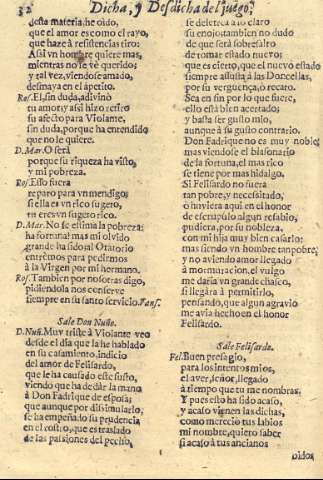 32 Dicha, y Desdicha del juego;
desta materia, he oido,
que el amor es como el rayo,
que haze à resistencias tiro:
Assi vn hombre quiere mas,
mientras no se vè querido;
y tal vez, viendose amado,
desmaya en el apetito.
Ros. El, sin duda, adivinò
tu amor, y assi hizo retiro
su afecto para Violante,
sin duda, porque ha entendido
que no le quiere.
D. Mar. O serà
porque su riqueza ha visto,
y mi pobreza.
Ros. Esso fuera
reparo para vn mendigo;
si ella es vn rico sugero,
tu eres vn sugeto rico.
D. Mar. No se estima la pobreza:
ha fortuna! mas mi olvido
grande ha sido, al Oratorio
entrèmos para pedirmos
à la Virgen por mi hermano.
Ros. Tambien por nosotras digo,
pidiendola nos conserve
siempre en su santo servicio. Vans.
Sale Don Nuño.
D. Nuñ. Muy triste à Violante veo
desde el dia que la he hablado
en su casamiento, indicio
del amor de Felisardo,
que le ha causado este susto,
viendo que ha de dàr la mano
à Don Fadrique de esposa;
que aunque por dissimularlo,
se ha empeñado su prudencia
en el rostro, que es traslado
de las passiones del pecho,
se deletrea à lo claro
su enojo; tambien no dudo
de que serà sobresalto
de tomar estado nuevo;
que es cierto, que el nuevo estado
siempre assusta à las Doncellas,
por su verguença, ò recato.
Sea en fin por lo que fuere,
ello està bien acertado;
y basta ser gusto mio,
aunque à su gusto contrario.
Don Fadrique no es muy noble;
mas viendose el blasonario
de la fortuna, el mas rico
se tiene por mas hidalgo.
Si Felisardo no fuera
tan pobre, y necessitado,
ò huviera aqui en el honor
de escrupulo algun resabio,
pudiera, por su nobleza,
con mi hija muy bien casarlo:
mas siendo vn hombre tan pobre;
y no aviendo amor llegado
à mormuracion, el vulgo
me daria vn grande chasco,
si llegàra à permitirlo,
pensando, que algun agravio
me avia hecho en el honor
Felisardo.
Sale Felisardo.
Fel. Buen presagio,
para los intentos mios,
el aver, señor, llegado
à tiempo que tu me nombras.
Y pues esto ha sido acaso,
y acaso vienen las dichas,
como mereciò tus labios
mi nombre, quiero saber
si acaso à tus ancianos
oidos